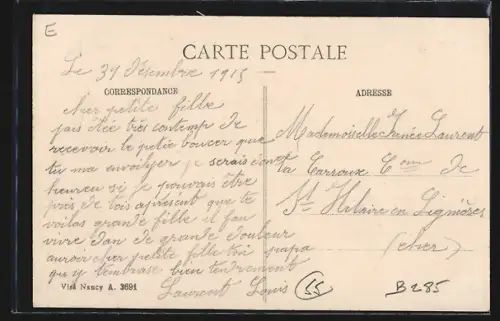 E
CARTE POSTALE
Le 31 désembre 1915
CORRESPONDANCE
ADRESSE
cher petite fille
jais étée très contemp de
recevoir le petie boucer que
tu ma envoilyer je serais
heureu si je pouvais être
près de tois aprésent que te
voilas grande fille il fau
vivre dan de grande douleur
auroir cher petite fille ton papa
qui t'embrase bien tendrement
Laurent Louis
Mademoiselle Irénée Laurent
la Carroux Cne de
St Hilaire en Lignières
(cher)
Visé Nancy A. 3691
55
B285